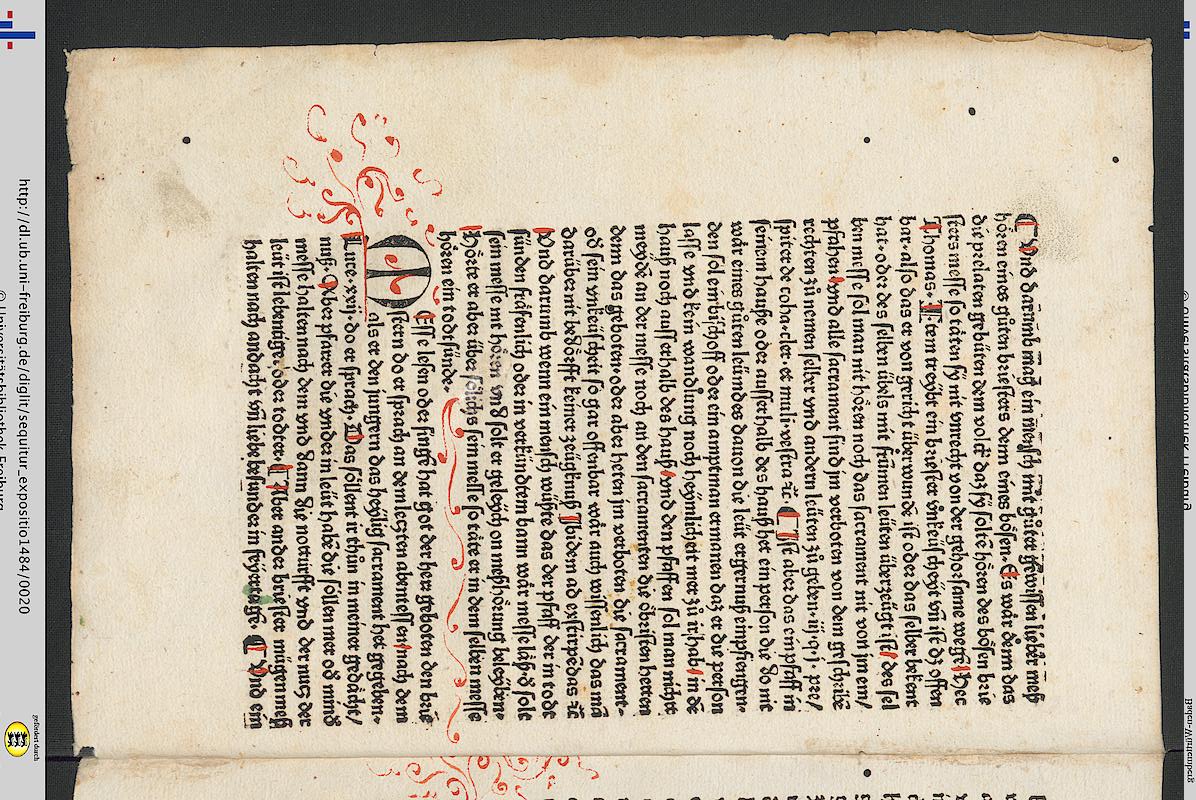 ¶ Vnd darumb mag ein mensch mit gůter gewissen lieber meß
hören eines gůten briesters denn eines bösen· Es wär denn das
die prelaten gebüten dem volck daz sy soltē hören des bösen brie
sters messe so täten sy nit vnrecht von der gehorsame wegē Hec
Thomas· ¶ Item treybt ein briester vnkeuscheyt vn̄ ist dz offen
bar· also das er von gericht überwunden ist oder das selber bekent
hat· oder des selben übels mit frūmen leüten überzeügt ist/ des sel
ben messe sol man nit hören noch das sacrament nit von jm em/
pfahen Vnd alle sacrament sind jm verboten von dem geschribē
rechten zů nemen selber vnd andern leüten zů geben· iij· q· j· pre/
spiter de coha· cler· et muli· vestra ꝛc̄· ¶ Ist aber das ein pfaff in
seinem hauße oder ausserhalb des hauß het ein person die do nit
wär eines gůten leümdes dauon die leüt ergernuß empfiengen·
den sol ein bischoff oder ein amptman ermanen daz er die person
lasse vnd kein wandlung noch heymlicheit mer zů ir hab/ in dē
hauß noch ausserhalb des hauß/ vnd den pfaffen sol man nicht
meyden an der messe noch an den sacramenten die obristen hetten
dem das geboten· oder aber hetten im verboten die sacrament·
od̓ sein vnkeüscheit so gar offenbar wär auch wissenlich das mā
darüber nit bedörfft keiner zeügknuß Ibidem ad extirpēdas ꝛc̄
Vnd darumb wenn ein mensch wüßte das der pfaff der in todt
sünden fräfenlich oder in verkündtem bann wär messe läß/ d̓ solt
sein messe nit hören vnd solt er geleych on meßhörung beleyben·
Hörte er aber über sölichs sein messe so täte er in dem selben messe
hören ein todtsünde·
Messe lesen oder singē hat got der herr geboten den brie
stern do er sprach an dem letsten abentessen/ nach dem
als er den jungern das heylig sacrament het gegeben·
Luce· xxij· do er sprach· Das söllent ir thůn in meiner gedächt/
nuß· Aber pfarrer die vnder in leüt habē die söllen mer od̓ mind̓
messe halten nach dem vnd dann die notturfft vnd der nutz der
leüt ist lebentige· oder todter· ¶ Aber ander briester mügen meß
halten nach andacht vn̄ liebe besunder in fyertagē· ¶ Vnd ein
http://dl.ub.uni-freiburg.de/diglit/sequitur_expositio1484/0020
© Universitätsbibliothek Freiburg
gefördert durch